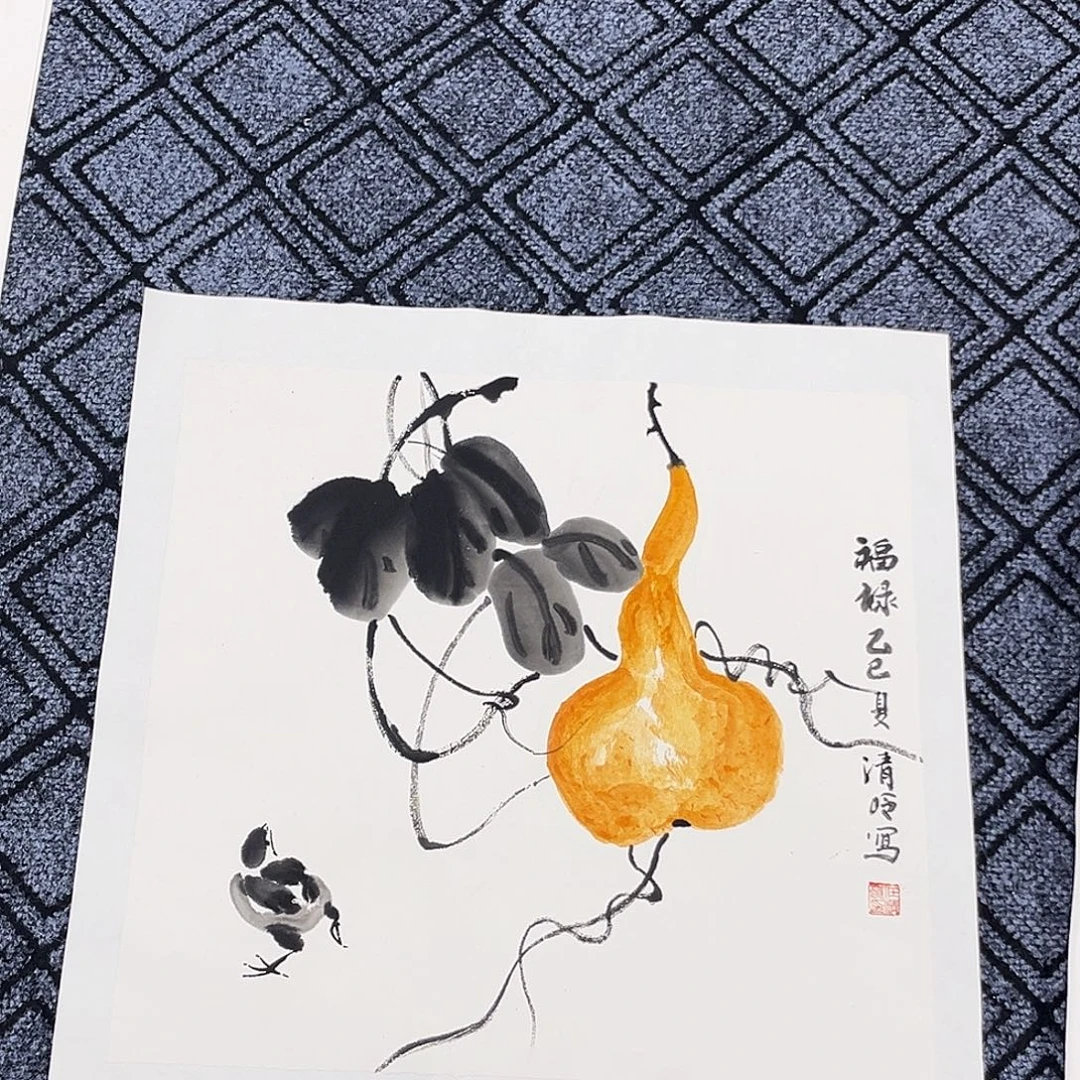 福禄乙巳夏清吟写